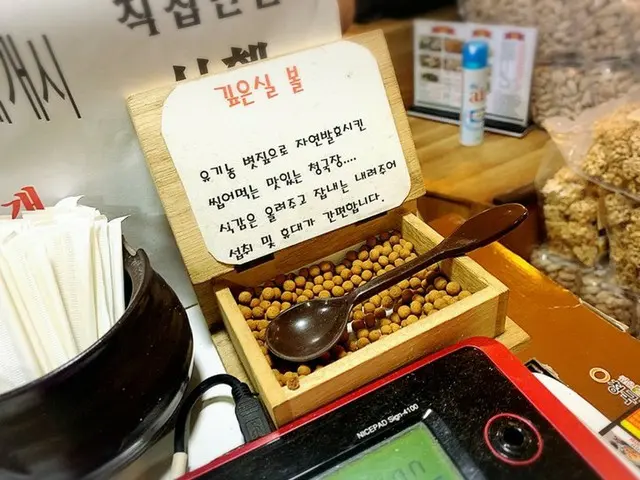 직접만든
개시
깊은실 볼
유기농 볏짚으로 자연발효시킨
씹어먹는 맛있는 청국장....
식감은 올려주고 잡내는 내려주어
섭취 및 휴대가 간편합니다.
NICEPAD Sign-4100